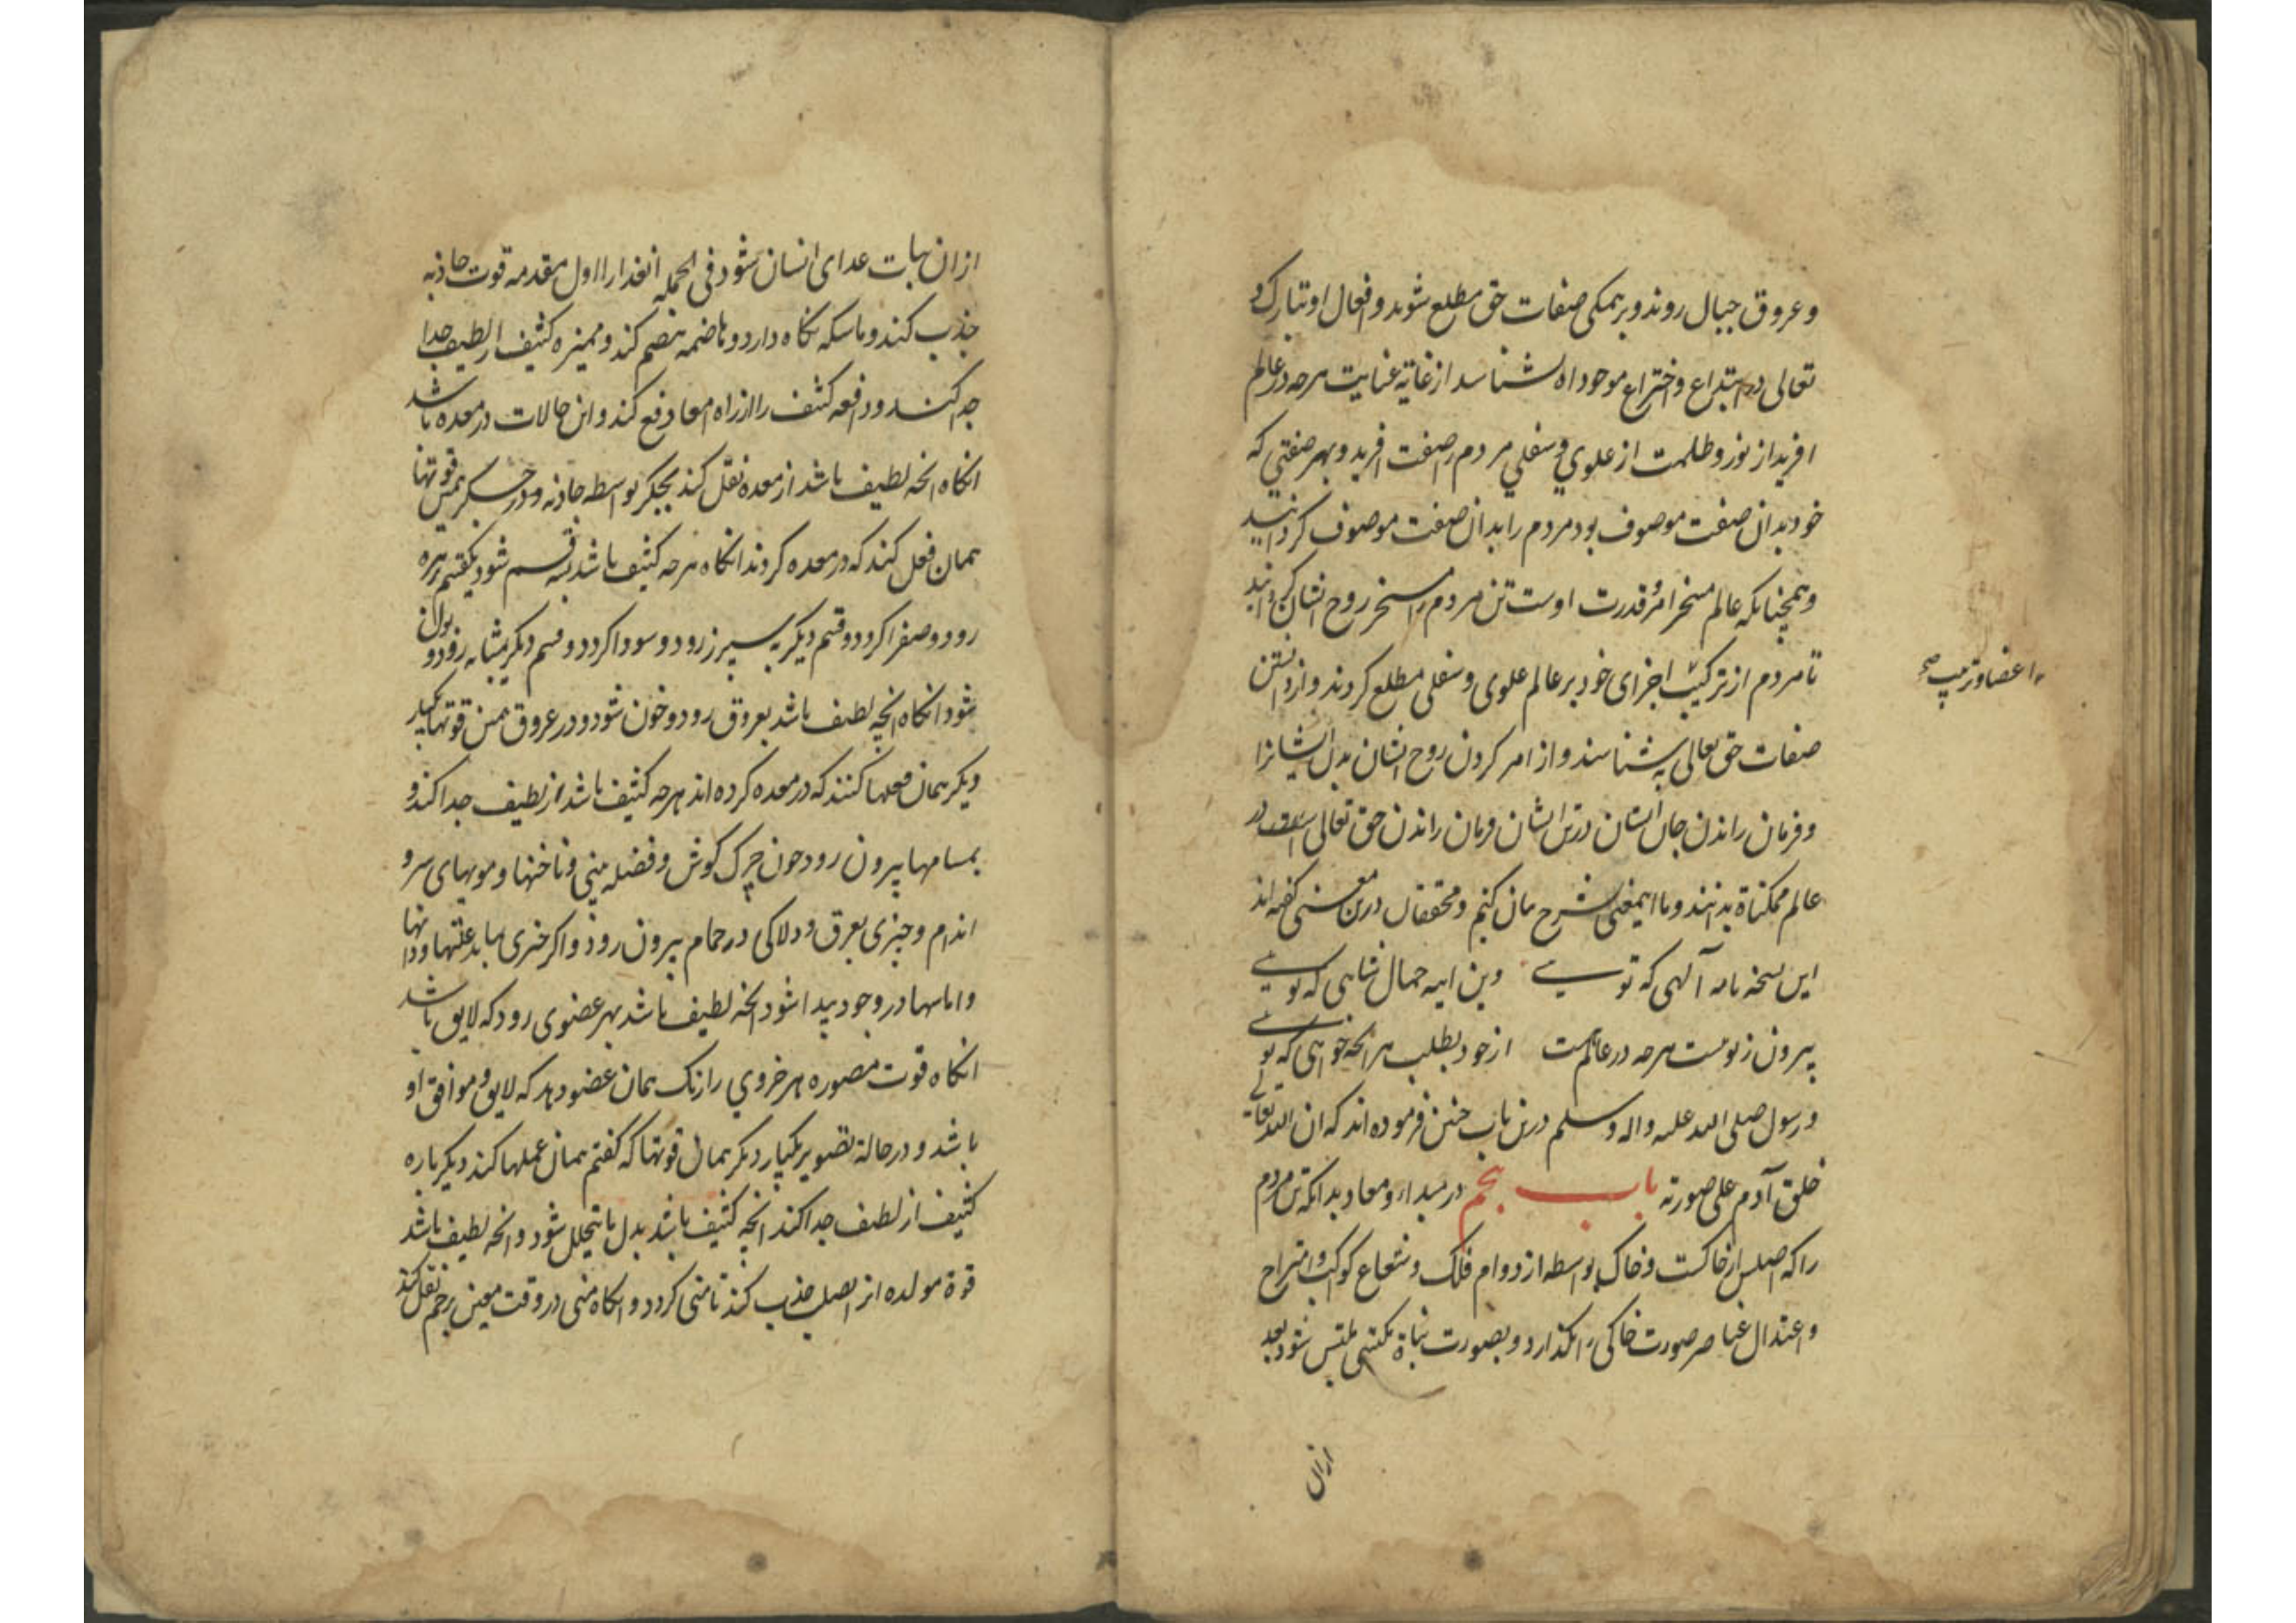 و عروق جبال روند و بر همکی صفات حق مطلع شوند و افعال او تبارک و
تعالی در ابتداع و اختراع موجوداه شناسد از غایة عنایت هرجه در عالم
افرید از نور و ظلمت از علوي و سفلي مردم را صفت افرید و بهر صفتی که
خود بدان صفت موصوف بود مردم را بدان صفت موصوف کردانید
و همچنانکه عالم مسخر امر و قدرت اوست تن مردم را مسخر روح انسان کردانید
تا مردم از ترکیب اجزای خود بر عالم علوی و سفلی مطلع کردند و از دانستن
اعضا و ترتیب صح
صفات حق تعالی به شناسند و از امر کردن روح انسان بدن ایشانرا
و فرمان راندن جان ایشان در تن ایشان فرمان راندن حق تعالی در
عالم ممکناة بدانند و ما اینمعنی شرح بیان کنیم و محققان درین معنی کفته اند
این نسخه نامه آلهی که توسیے وین اینه جمال شاهی که توسیے
بیرون ز تو نیست هرجه در عالم هست از خود بطلب هر انجه خواهی که توسیے
و رسول صلی الله علیه و اله و سلم درین باب جنین فرموده اند که ان الله تعالے
خلق آدم علی صورته باب پنجم در مبداء و معاد بدانکه تن مردم
را که اصلس از خاکست و خاک بواسطه از دوام فلک و شعاع کوکب و امتزاح
و اعتدال عناصر صورت خاکی را بکذارد و بصورت نباة مکتسی ملتبس شود بعد
ازان
ازان نبات غدای انسان شود فی الجمله انغذا را اول مقدمه قوت جاذبه
جذب کند و ماسکه نکاه دارد و هاضمه هضم کند و ممیزه کثیف از لطیف جدا
جدا کند و دافعه کثیف را از راه امعا دفع کند و این حالات در معده باشد
انکاه انجه لطیف باشد از معده نقل کند بجکر بواسطه جاذبه و در جکر همین قوتها
همان فعل کند که در معده کردند انکاه هرجه کثیف باشد بسه قسم شود یکقسم بزهره
رود و صفرا کردد و قسم دیکر به سپرز رود و سودا کردد و قسم دیکر بمثانه رود و بول
شود انکاه انچه لطیف باشد بعروق رود و خون شود و در عروق همین قوتها یکبار
دیکر همان فعلها کنند که در معده کرده اند هرجه کثیف باشد از لطیف جدا کند و
بمسامها بیرون رود جون چرک کوش و فضله بینی و ناخنها و مویهای سر و
اندام و چیزی بعرق و دلاکی در حمام بیرون رود و اکر چیزی بماند علتها و دانها
و اماسها در وجود پیدا شود انجه لطیف باشد بهر عضوی رود که لایق باشد
انکاه قوت مصوره هر جزوي را رنک همان عضو دهد که لایق و موافق او
باشد و در حالة تصویر یکبار دیکر همان قوتها که کفتم همان عملها کند دیکر باره
کثیف از لطیف جدا کند انچه کثیف باشد بدل ما یتحلل شود و انجه لطیف باشد
قوة مولده از صلب جذب کند تا منی کردد و انکاه منی در وقت معین برحم نقل کند